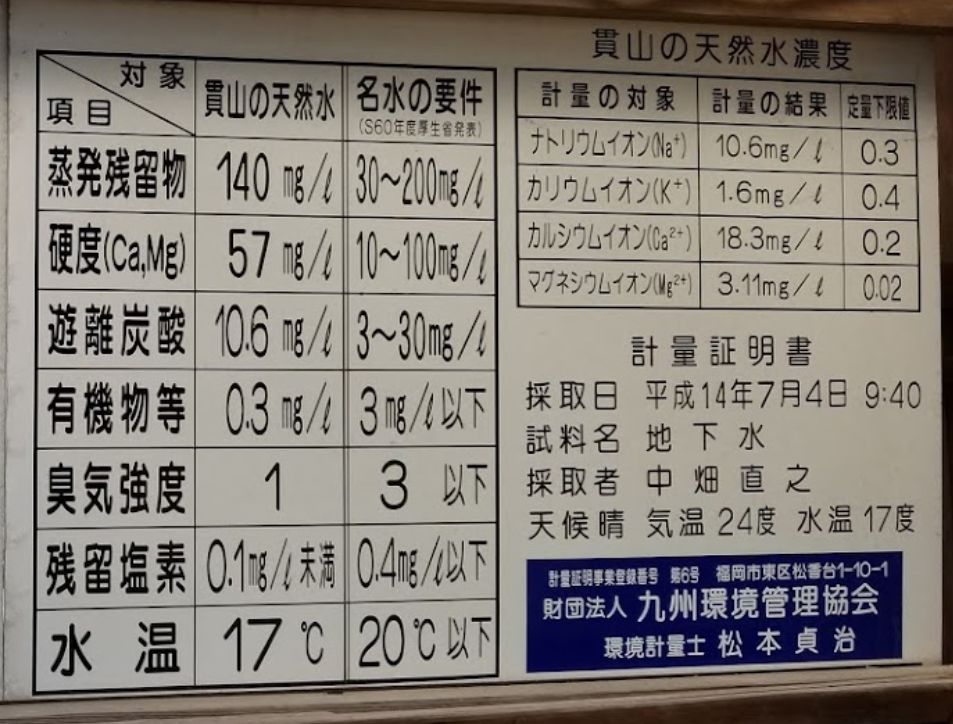 対象
項目
貫山の天然水
名水の要件
(S60年度厚生省発表)
蒸発残留物 140 mg/ℓ 30～200mg/ℓ
硬度(Ca,Mg) 57 mg/ℓ 10～100mg/ℓ
遊離炭酸 10.6 mg/ℓ 3～30mg/ℓ
有機物等 0.3 mg/ℓ 3mg/ℓ以下
臭気強度 1 3 以下
残留塩素 0.1mg/ℓ未満 0.4mg/ℓ以下
水温 17℃ 20℃以下
貫山の天然水濃度
計量の対象 計量の結果 定量下限値
ナトリウムイオン(Na⁺) 10.6mg/ℓ 0.3
カリウムイオン(K⁺) 1.6mg/ℓ 0.4
カルシウムイオン(Ca²⁺) 18.3mg/ℓ 0.2
マグネシウムイオン(Mg²⁺) 3.11mg/ℓ 0.02
計量証明書
採取日 平成14年7月4日 9:40
試料名 地下水
採取者 中畑直之
天候晴 気温24度 水温17度
計量証明事業登録番号 第6号 福岡市東区松香台1-10-1
財団法人 九州環境管理協会
環境計量士 松本貞治